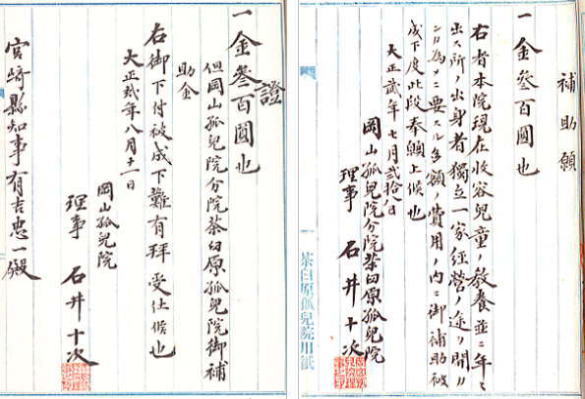 補助願
一金叄百圓也
右者本院現在收容兒童ノ教養並ニ年々
出ス所ノ出身者獨立一家経營ノ途ヲ開カ
ン為メニ要スル多額ノ費用ノ内ニ御補助被
成下度此段奉願上候也
大正貳年七月貳拾八日
岡山孤兒院分院茶臼原孤兒院
理事 石井十次
茶臼原孤兒院用紙
證
一金叄百圓也
但岡山孤兒院分院茶臼原孤兒院御補
助金
右御下付被成下難有拜受仕候也
大正貳年八月十一日
岡山孤兒院
理事 石井十次
宮崎縣知事有吉忠一殿